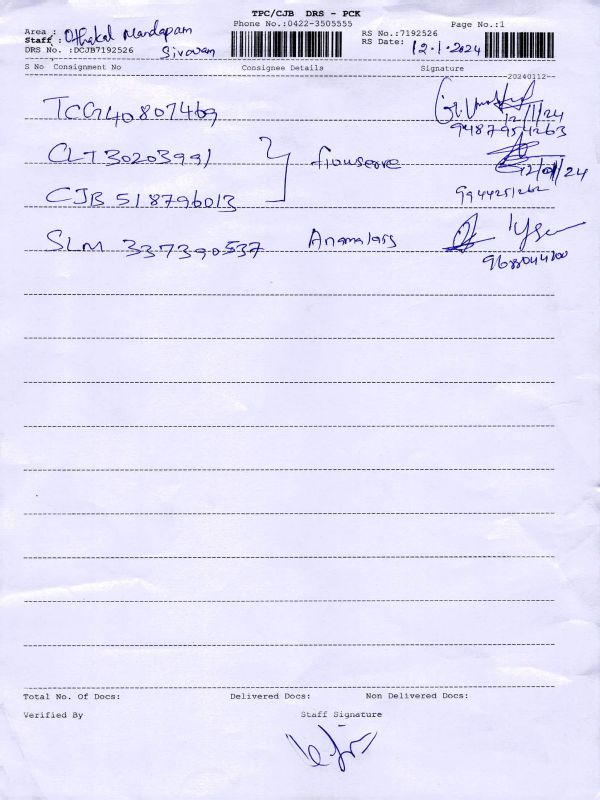 TPC/CJB DRS - PCK
Phone No.:0422-3505555 Page No.:1
Area : Othakal Mandapam
Staff : Sivaram
DRS No. :DCJB7192526
RS No.:7192526
RS Date: 12.1.2024
S No Consignment No Consignee Details Signature
20240112
TCG140807469 12/1/24
9487954263
CLT302039991 flowserve 12/01/24
CJB 518796013 9944251262
SLM 337390537 Anamalais
9688044800
Total No. Of Docs: Delivered Docs: Non Delivered Docs:
Verified By Staff Signature